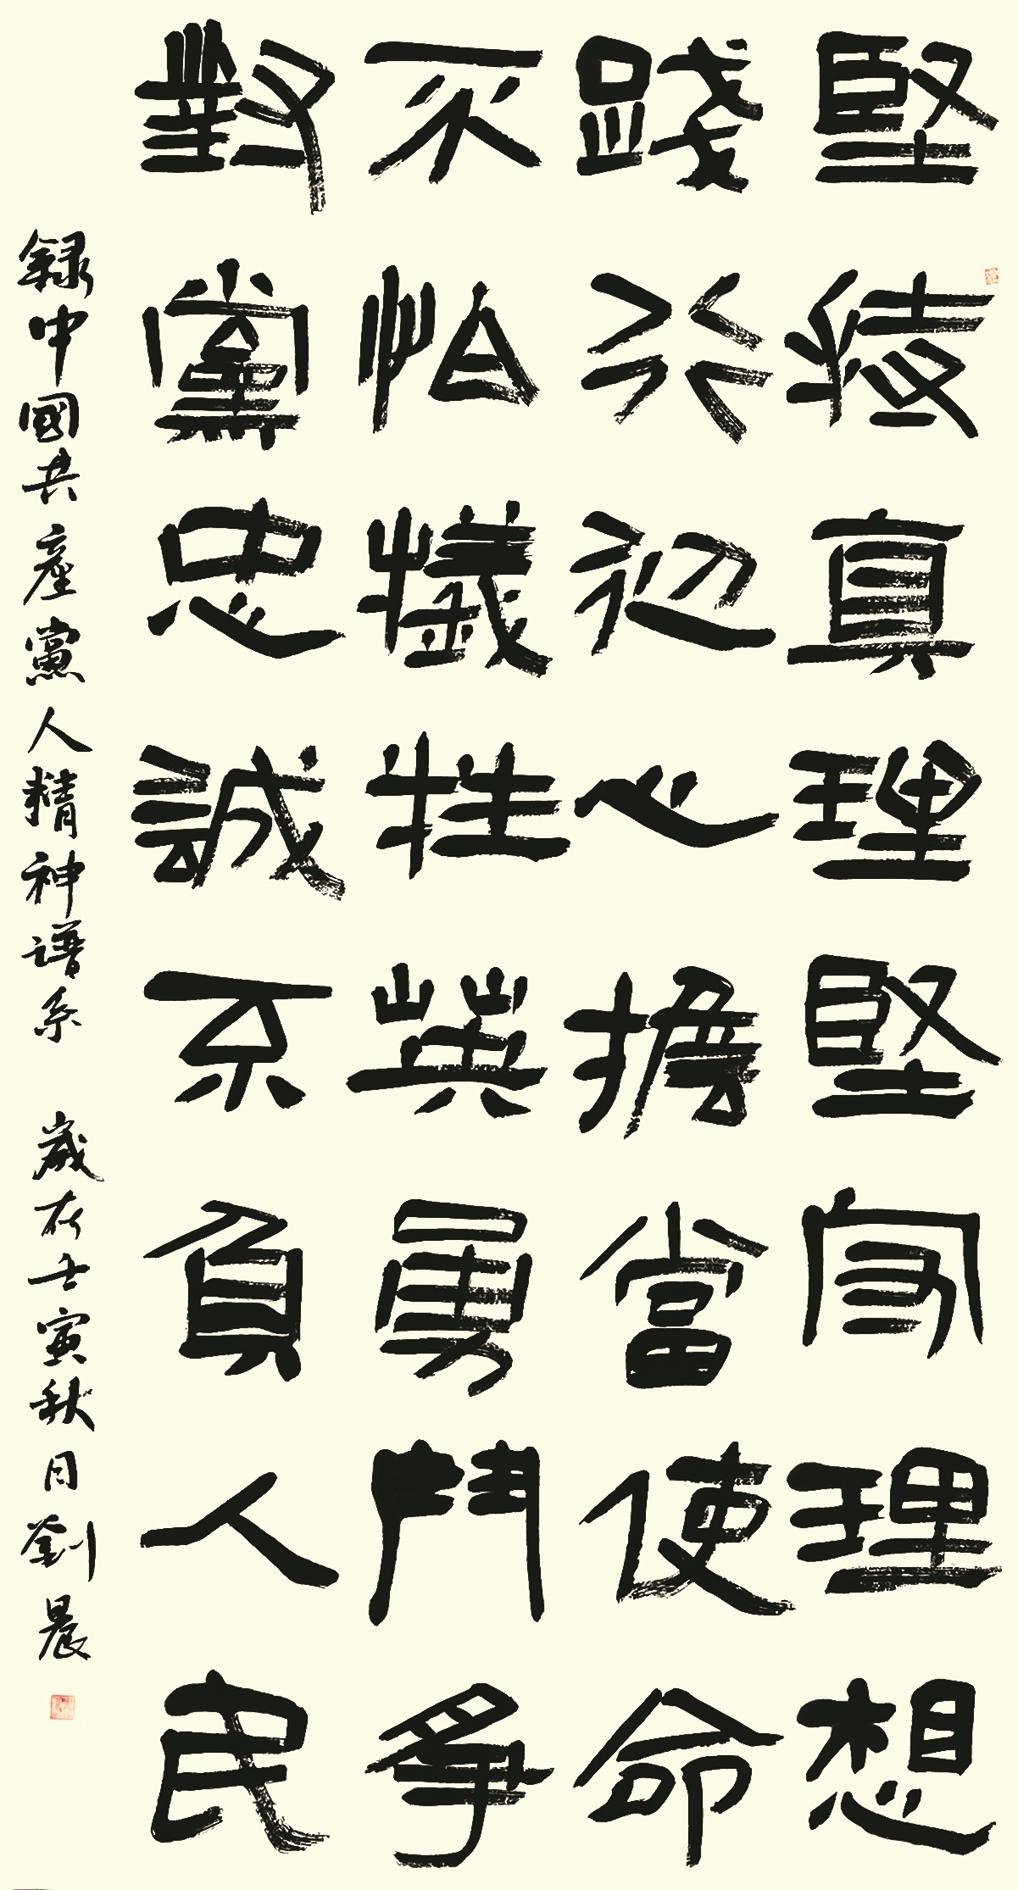 堅持真理堅守理想
踐行初心擔當使命
不怕犧牲英勇鬥爭
對黨忠誠不負人民
錄中國共產黨人精神譜系 歲在壬寅秋月劉晨